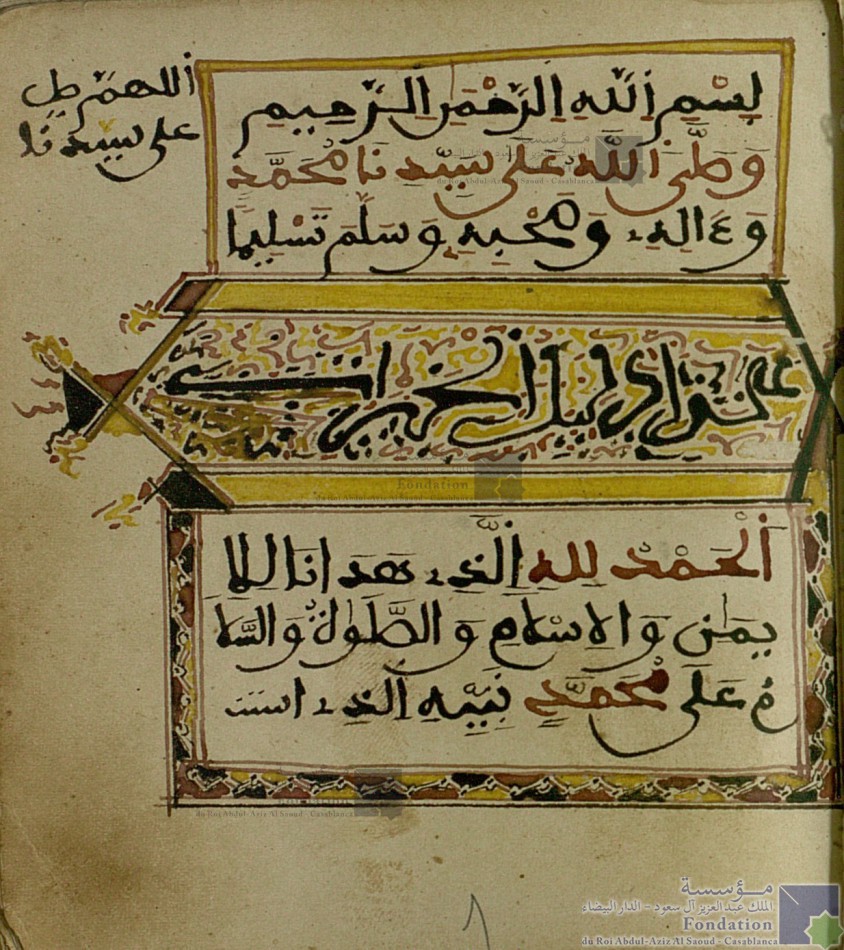 اللهم صل
على سيدنا
بِسْمِ اللَّهِ الرَّحْمَنِ الرَّحِيمِ
وَصَلَّى اللَّهُ عَلَى سَيِّدِنَا مُحَمَّدٍ
وَءَالِهِ وَصَحْبِهِ وَسَلَّمَ تَسْلِيمًا
اَلْحَمْدُ لِلهِ الَّذِے هَدَانَا لِلاِ
يمَنِ وَالِاسْلَامِ وَالصَّلَوٰةُ وَالسَّلَا
مُ عَلَى مُحَمَّدٍ نَبِيِّهِ الَّذِے اسْتَ
مؤسسة
الملك عبد العزيز آل سعود - الدار البيضاء
Fondation
du Roi Abdul-Aziz Al Saoud - Casablanca